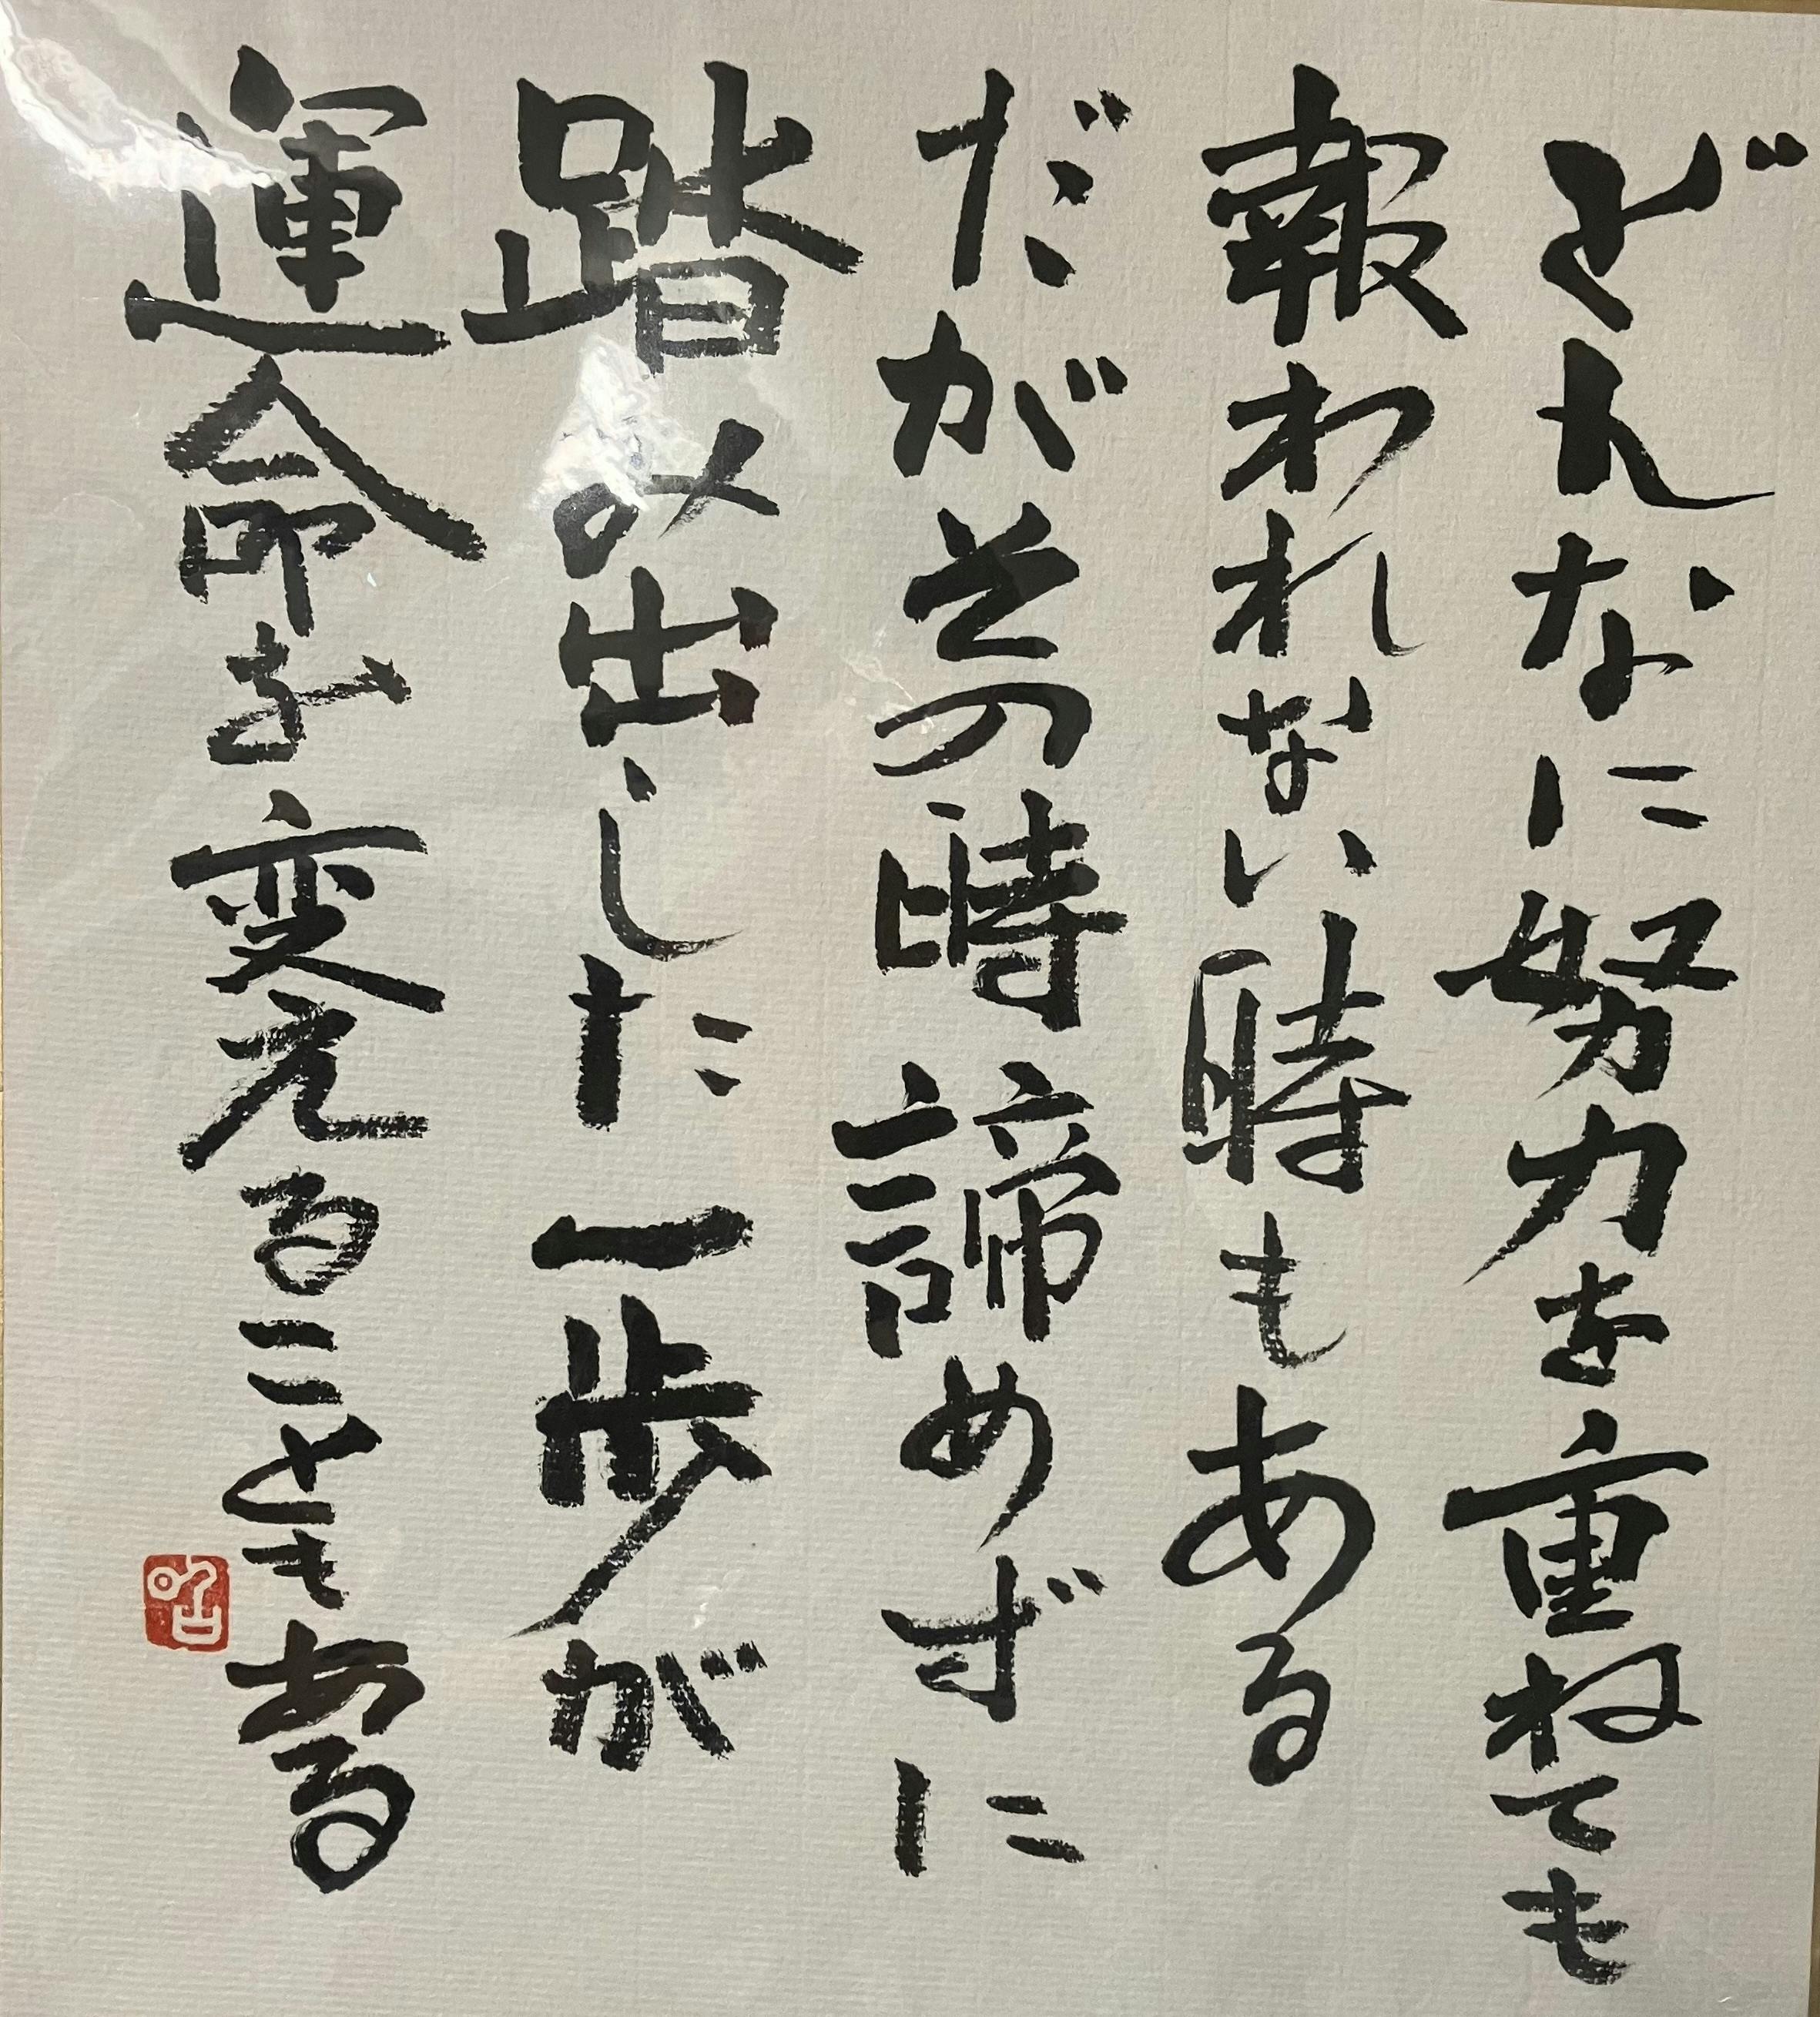 どんなに努力を重ねても
報われない時もある
だがその時諦めずに
踏み出した一歩が
運命を変えることもある